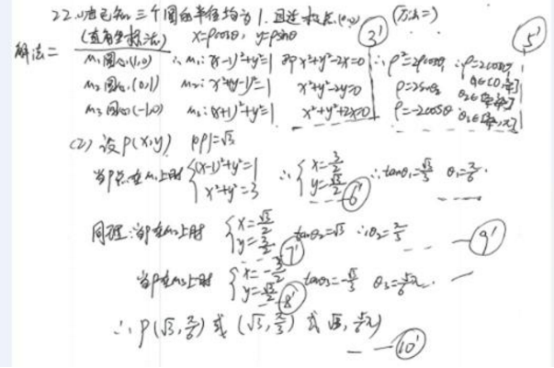 22. (1)法已知三个圆的半径均为1.且过极点(0,0) (方法二)
解法二 (直角坐标法) x=ρcosθ, y=ρsinθ 3' 5'
M₁圆心(1,0) ∴M₁: (x-1)²+y²=1 即x²+y²-2x=0 ∴ρ²=2ρcosθ, ∴ρ=2cosθ, θ₁∈[0,π/4]
M₂圆心(0,1) M₂: x²+(y-1)²=1 x²+y²-2y=0 ρ=2sinθ θ₂∈[π/4,3π/4]
M₃圆心(-1,0) M₃: (x+1)²+y²=1 x²+y²+2x=0 ρ=-2cosθ θ₃∈[3π/4,π]
(2) 设P(x,y) |OP|=√3
当P点在M₁上时 {(x-1)²+y²=1 x²+y²=3 ∴ {x=3/2 y=√3/2 6' ∴tanθ₁=√3/3 θ₁=π/6.
同理:当P在M₂上时 {x=√3/2 y=3/2 7' tanθ₂=√3 ∴θ₂=π/3 9'
当P在M₃上时 {x=-3/2 y=√3/2 8' tanθ₃=-√3/3 θ₃=5π/6.
∴P(√3,π/6) 或 (√3,π/3) 或 (√3,5π/6)
10'